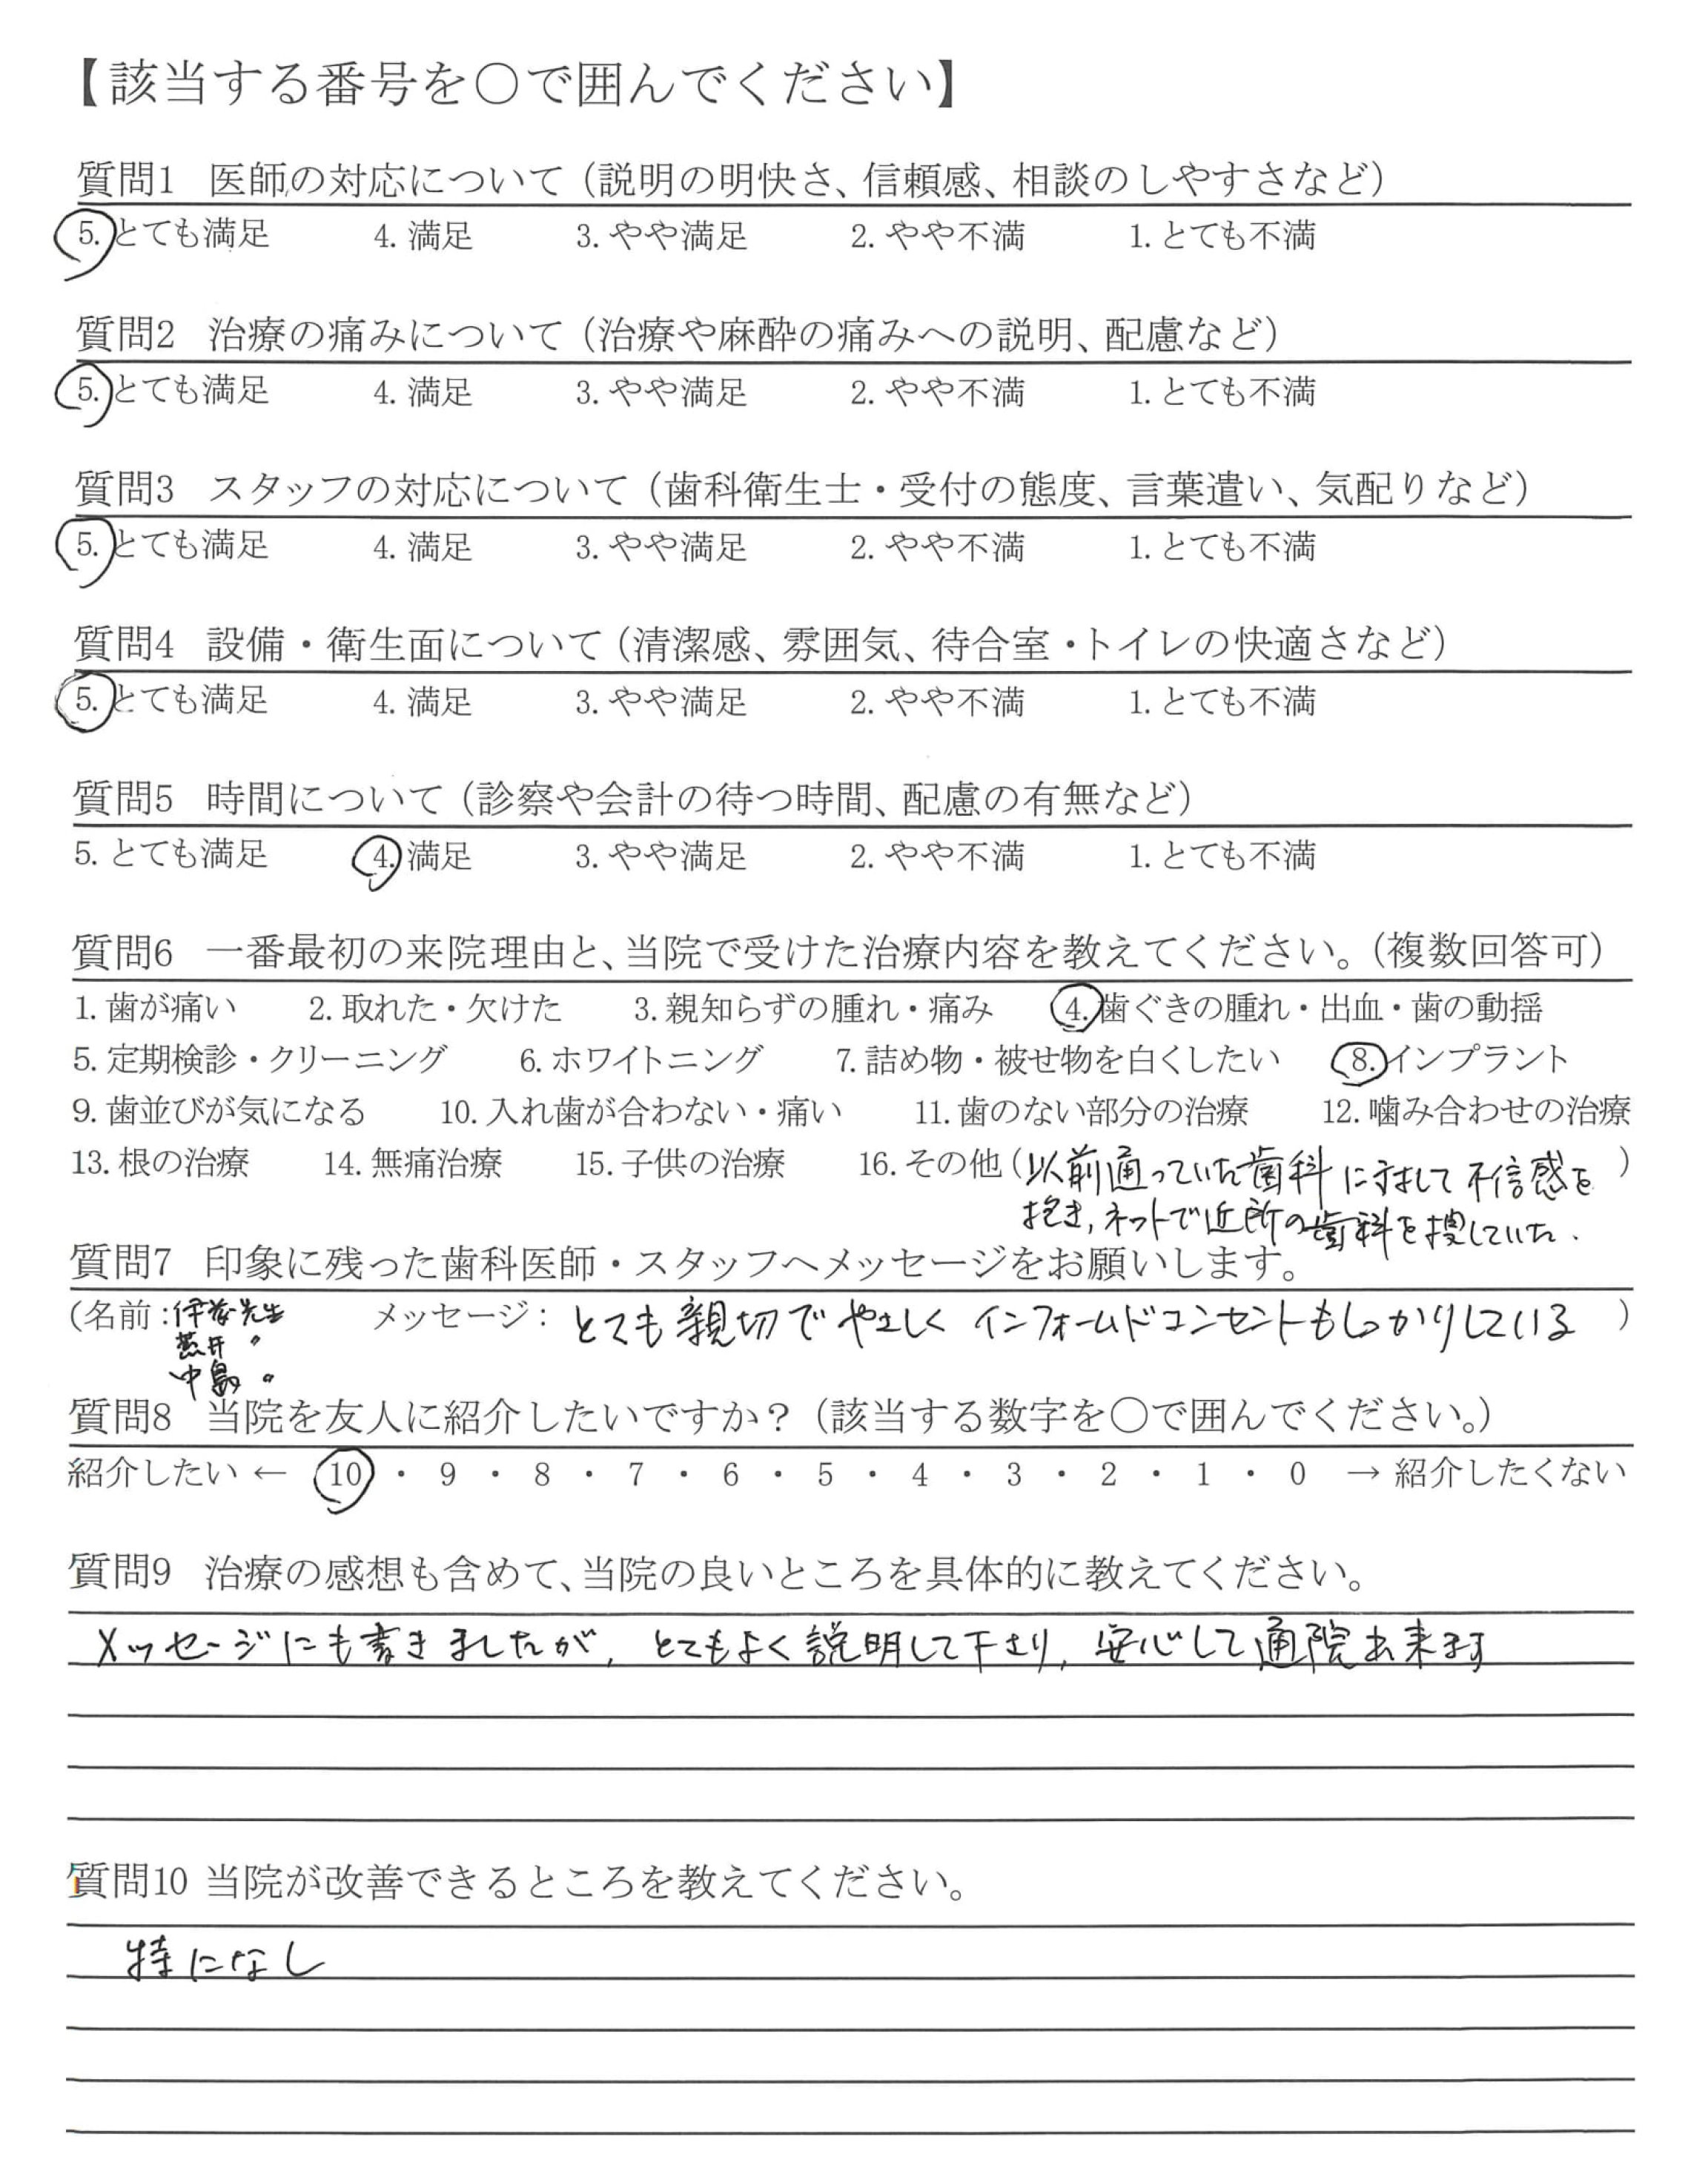 【該当する番号を〇で囲んでください】
質問1 医師の対応について（説明の明快さ、信頼感、相談のしやすさなど）
5. とても満足 4. 満足 3. やや満足 2. やや不満 1. とても不満
質問2 治療の痛みについて（治療や麻酔の痛みへの説明、配慮など）
5. とても満足 4. 満足 3. やや満足 2. やや不満 1. とても不満
質問3 スタッフの対応について（歯科衛生士・受付の態度、言葉遣い、気配りなど）
5. とても満足 4. 満足 3. やや満足 2. やや不満 1. とても不満
質問4 設備・衛生面について（清潔感、雰囲気、待合室・トイレの快適さなど）
5. とても満足 4. 満足 3. やや満足 2. やや不満 1. とても不満
質問5 時間について（診察や会計の待つ時間、配慮の有無など）
5. とても満足 4. 満足 3. やや満足 2. やや不満 1. とても不満
質問6 一番最初の来院理由と、当院で受けた治療内容を教えてください。（複数回答可）
1. 歯が痛い 2. 取れた・欠けた 3. 親知らずの腫れ・痛み 4. 歯ぐきの腫れ・出血・歯の動揺
5. 定期検診・クリーニング 6. ホワイトニング 7. 詰め物・被せ物を白くしたい 8. インプラント
9. 歯並びが気になる 10. 入れ歯が合わない・痛い 11. 歯のない部分の治療 12. 噛み合わせの治療
13. 根の治療 14. 無痛治療 15. 子供の治療 16. その他（以前通っていた歯科に対して不信感を）
抱き，ネットで近所の歯科を捜していた．
質問7 印象に残った歯科医師・スタッフへメッセージをお願いします。
（名前：先生 メッセージ：とても親切でやさしくインフォームドコンセントもしっかりしている）
井 〃
中島 〃
質問8 当院を友人に紹介したいですか？（該当する数字を〇で囲んでください。）
紹介したい ← 10 ・ 9 ・ 8 ・ 7 ・ 6 ・ 5 ・ 4 ・ 3 ・ 2 ・ 1 ・ 0 → 紹介したくない
質問9 治療の感想も含めて、当院の良いところを具体的に教えてください。
メッセージにも書きましたが，とてもよく説明して下さり，安心して通院出来ます
質問10 当院が改善できるところを教えてください。
特になし